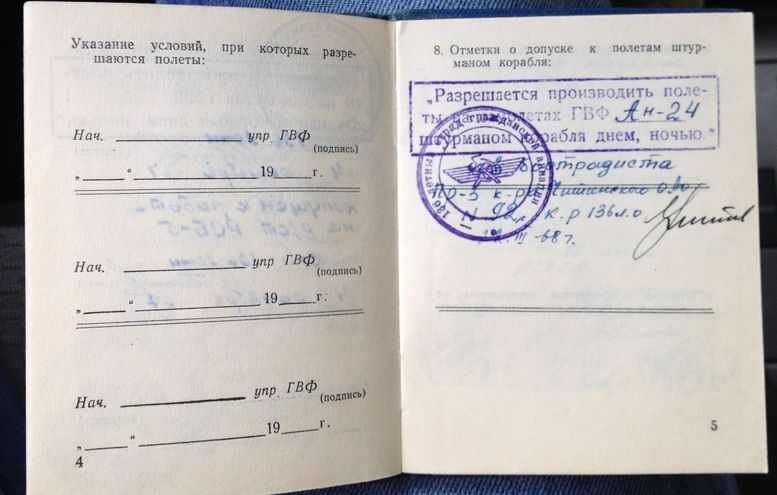 Указание условий, при которых разре-
шаются полеты:
Нач. ________ упр ГВФ
(подпись)
„ ____ “ ________ 19 ___ г.
Нач. ________ упр ГВФ
(подпись)
„ ____ “ ________ 19 ___ г.
Нач. ________ упр. ГВФ
(подпись)
„ ____ “ ________ 19 ___ г.
4
8. Отметки о допуске к полетам штур-
маном корабля:
„Разрешается производить поле-
ты летах ГВФ Ан-24
штурманом корабля днем, ночью."
136 летный отряд гражданской авиации
бортрадиста
Читинского
N 92 к-р 136 л.о
III 68 г.
5